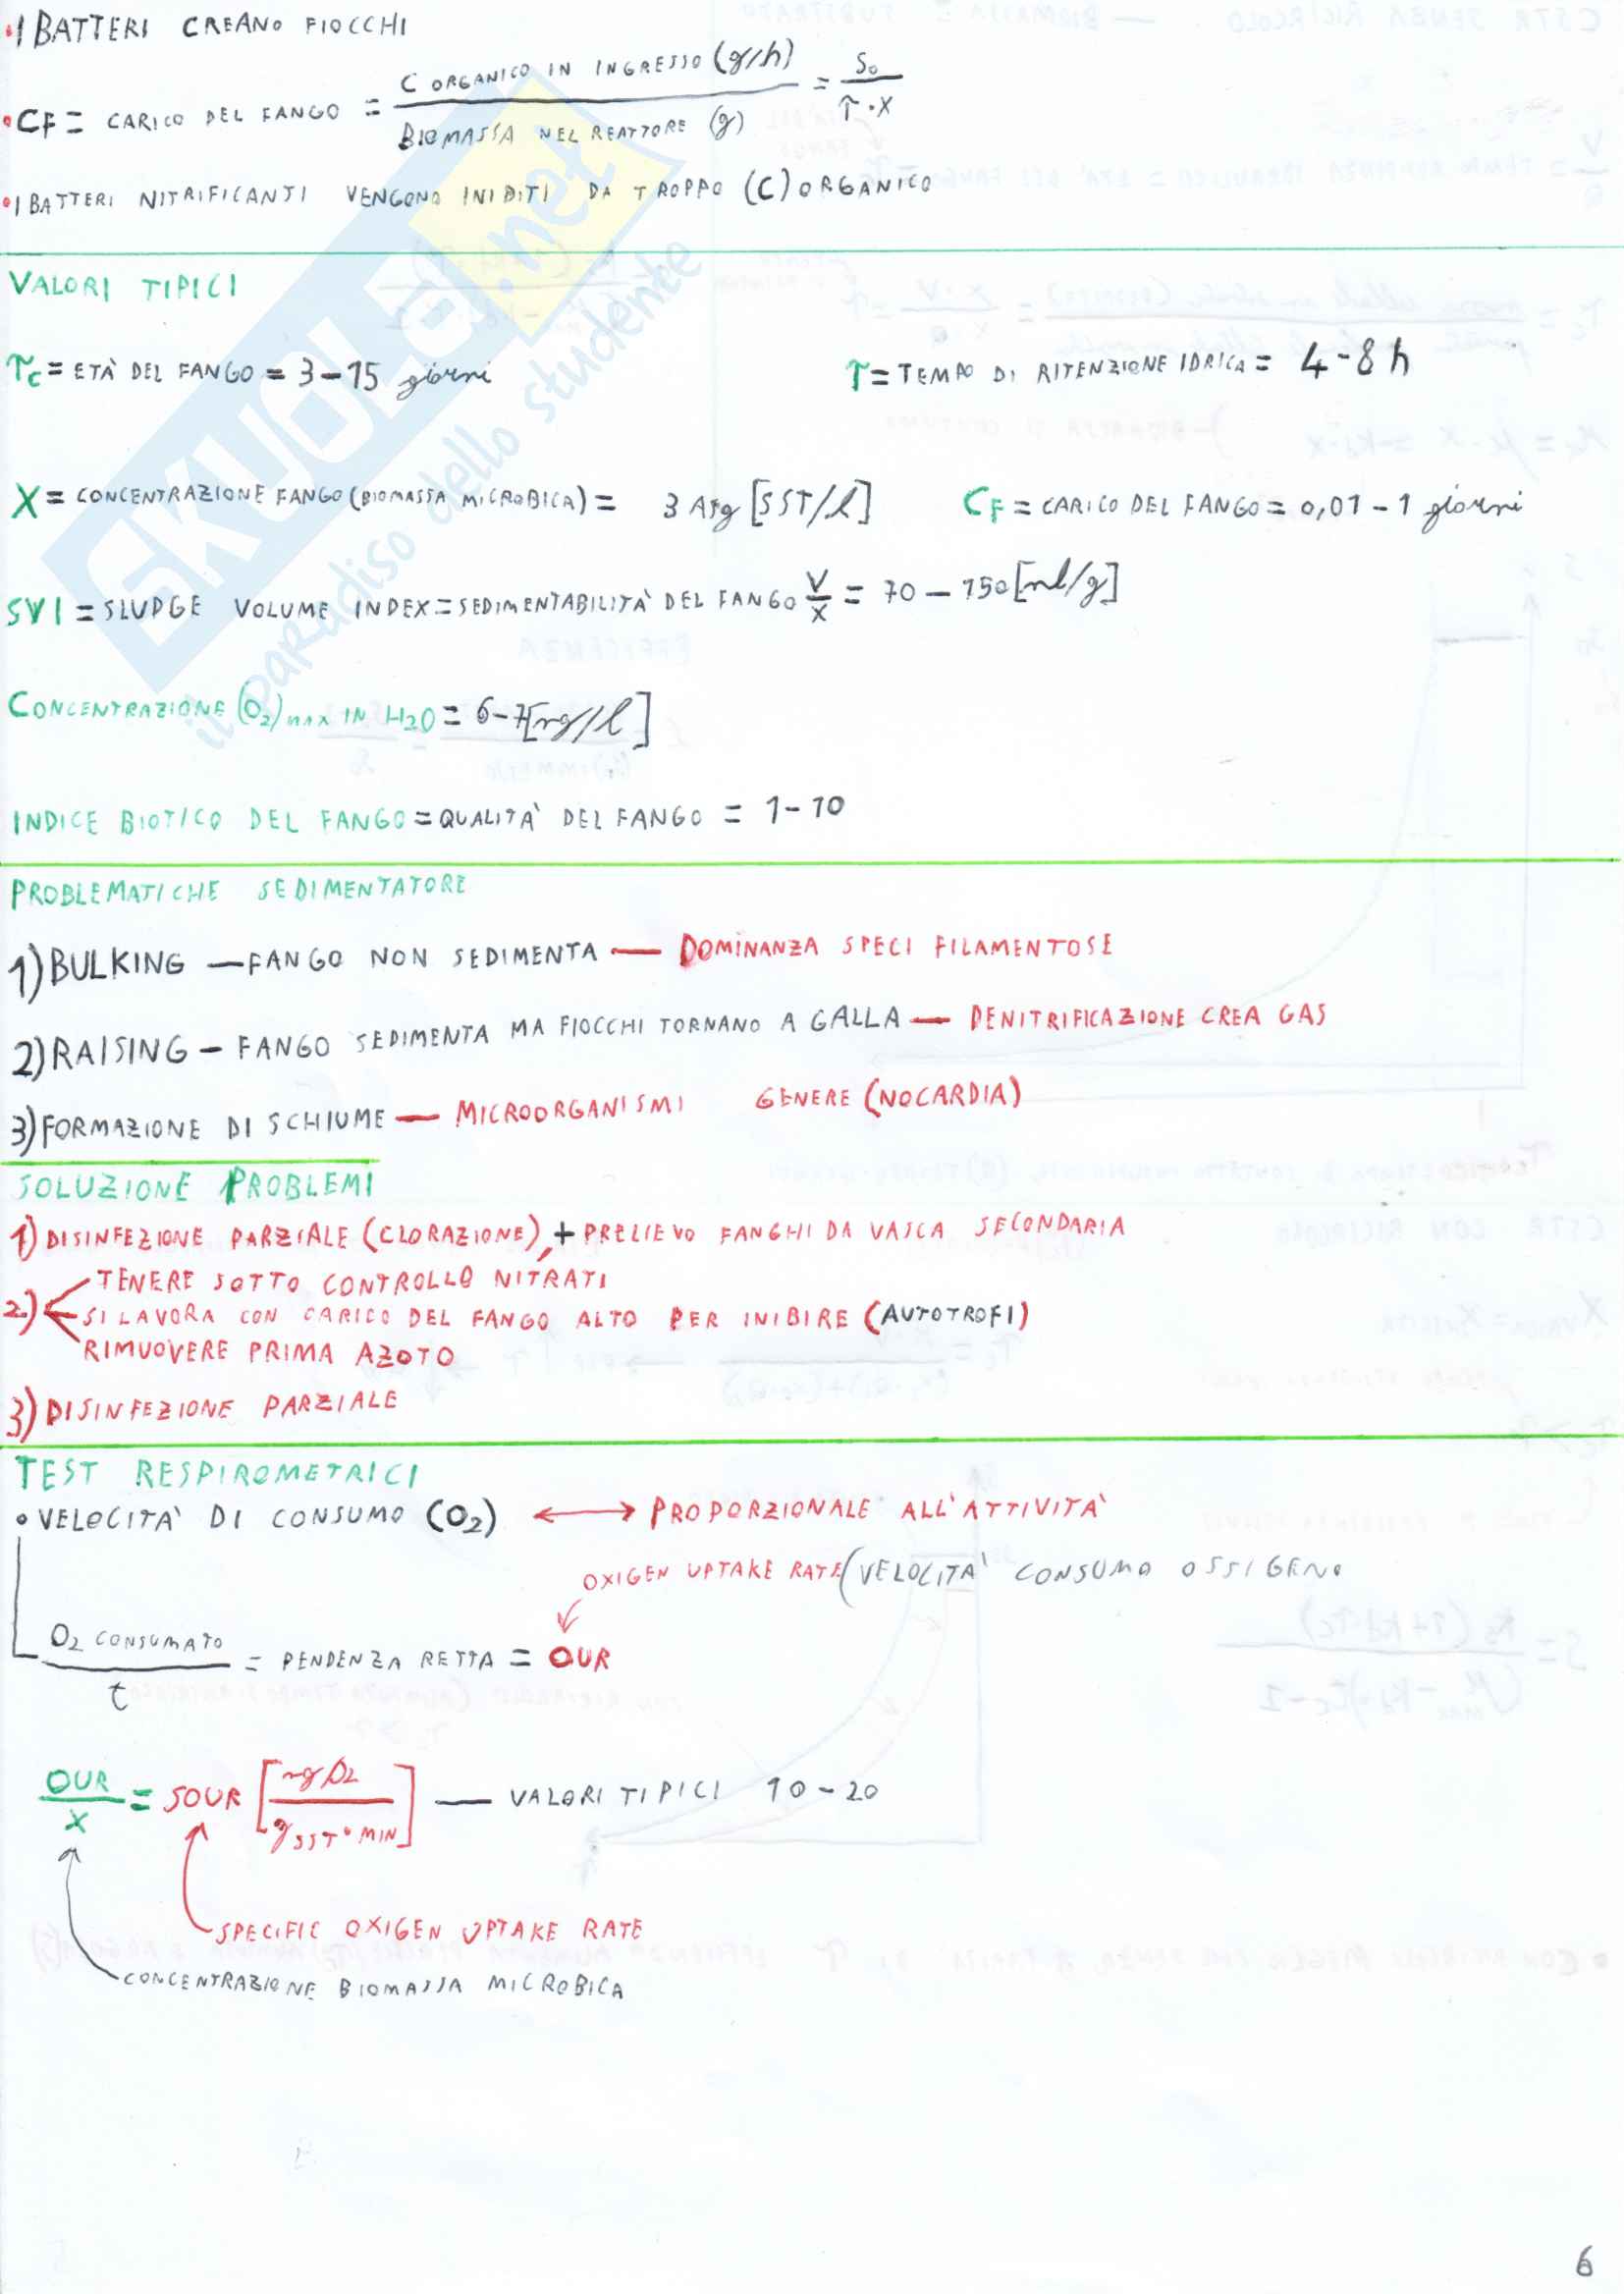 •I BATTERI CREANO FIOCCHI
•CF = CARICO DEL FANGO = C ORGANICO IN INGRESSO (g/h) / BIOMASSA NEL REATTORE (g) = S0 / τ·X
•I BATTERI NITRIFICANTI VENGONO INIBITI DA TROPPO (C) ORGANICO
VALORI TIPICI
τc = ETÀ DEL FANGO = 3-15 giorni
τ = TEMPO DI RITENZIONE IDRICA = 4-8 h
X = CONCENTRAZIONE FANGO (BIOMASSA MICROBICA) = 3 [SST/l]
CF = CARICO DEL FANGO = 0,01 - 1 giorni
SVI = SLUDGE VOLUME INDEX = SEDIMENTABILITÀ DEL FANGO V/X = 70 - 150 [ml/g]
CONCENTRAZIONE (O2) MAX IN H2O = 6-7 [mg/l]
INDICE BIOTICO DEL FANGO = QUALITÀ DEL FANGO = 1-10
PROBLEMATICHE SEDIMENTATORE
1) BULKING — FANGO NON SEDIMENTA — DOMINANZA SPECI FILAMENTOSE
2) RAISING — FANGO SEDIMENTA MA FIOCCHI TORNANO A GALLA — DENITRIFICAZIONE CREA GAS
3) FORMAZIONE DI SCHIUME — MICROORGANISMI GENERE (NOCARDIA)
SOLUZIONE PROBLEMI
1) DISINFEZIONE PARZIALE (CLORAZIONE), + PRELIEVO FANGHI DA VASCA SECONDARIA
2) TENERE SOTTO CONTROLLO NITRATI
SI LAVORA CON CARICO DEL FANGO ALTO PER INIBIRE (AUTOTROFI)
RIMUOVERE PRIMA AZOTO
3) DISINFEZIONE PARZIALE
TEST RESPIROMETRICI
• VELOCITÀ DI CONSUMO (O2) ↔ PROPORZIONALE ALL'ATTIVITÀ
OXIGEN UPTAKE RATE (VELOCITÀ CONSUMO OSSIGENO
O2 CONSUMATO / t = PENDENZA RETTA = OUR
OUR / X = SOUR [mg O2 / g SST · MIN] — VALORI TIPICI 10-20
SPECIFIC OXIGEN UPTAKE RATE
CONCENTRAZIONE BIOMASSA MICROBICA
6
SKUOLA.net
il paradiso dello studente